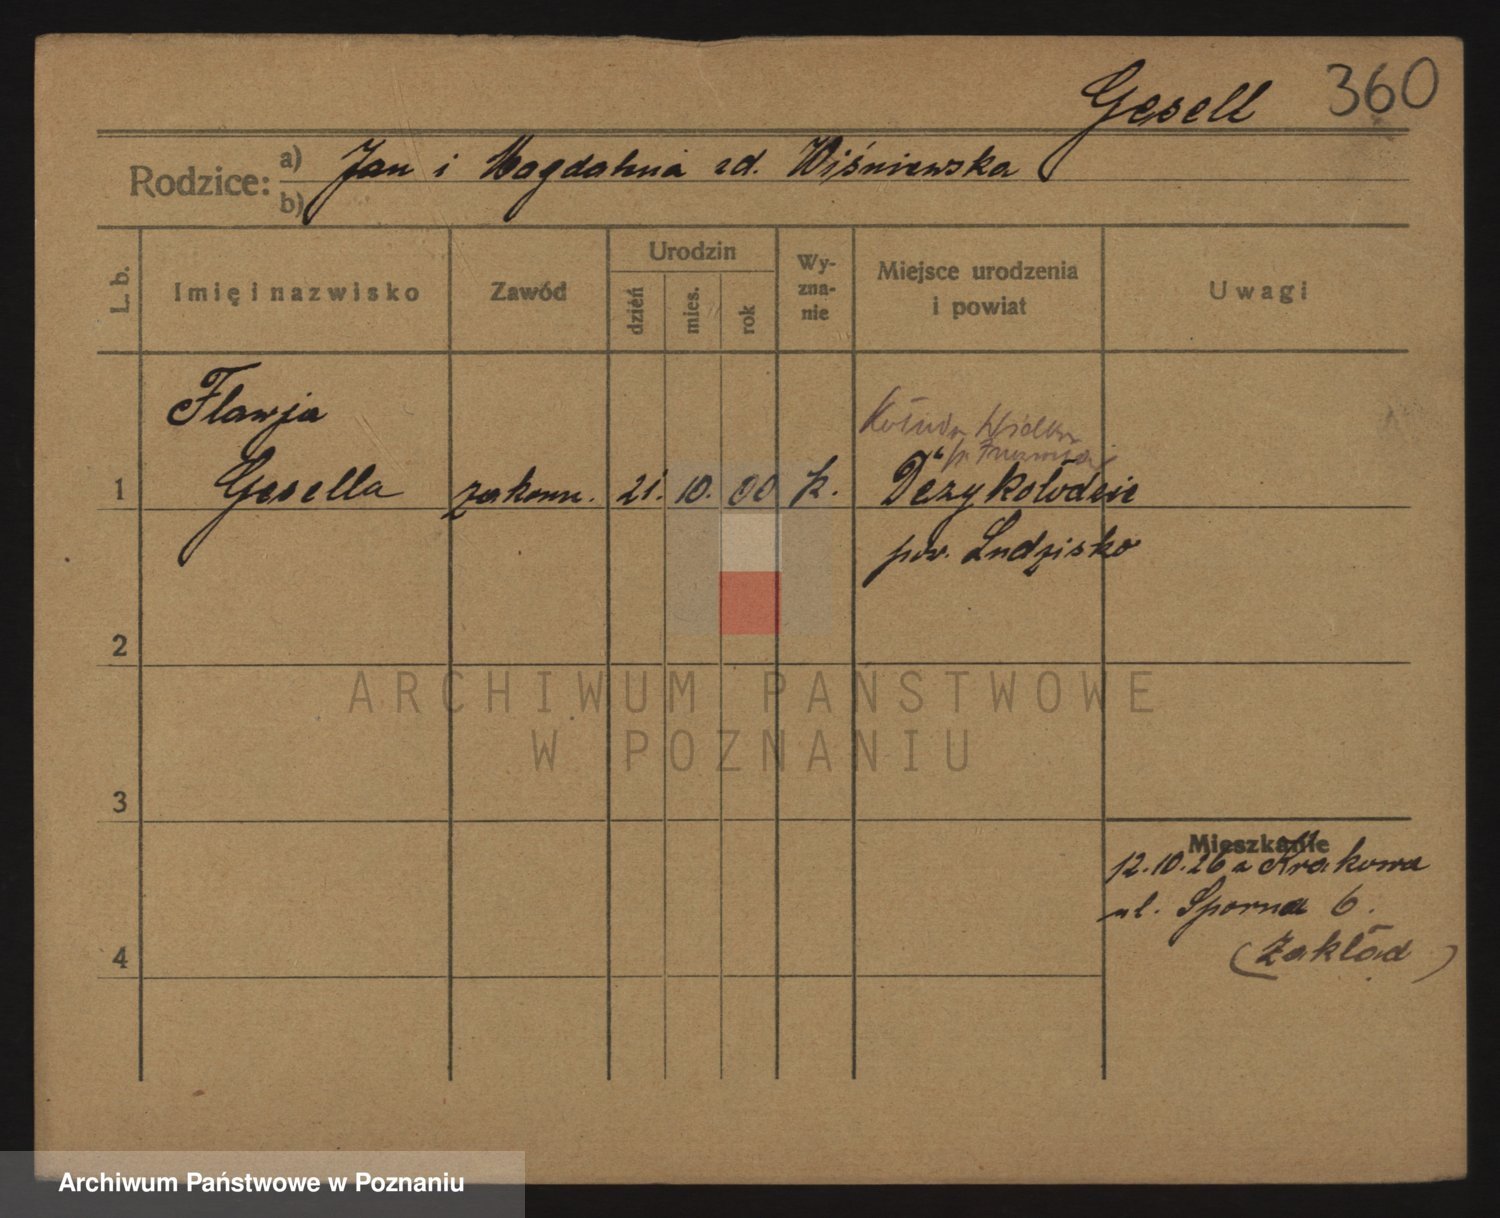 Gesell 360
Rodzice: a) Jan i Magdalena zd. Wiśniewska
b)
L. b. Imię i nazwisko Zawód Urodzin dzień mies. rok Wy-zna-nie Miejsce urodzenia i powiat Uwagi
Flawja
Kołuda Wielka
1 Gesella zakonn. 21. 10. 00 k.
pow. Ludzisko
2
ARCHIWUM PAŃSTWOWE
W POZNANIU
3
Mieszkanie
12.10.26 z Krakowa
ul. Sporna 6.
4 (Zakład)
Archiwum Państwowe w Poznaniu